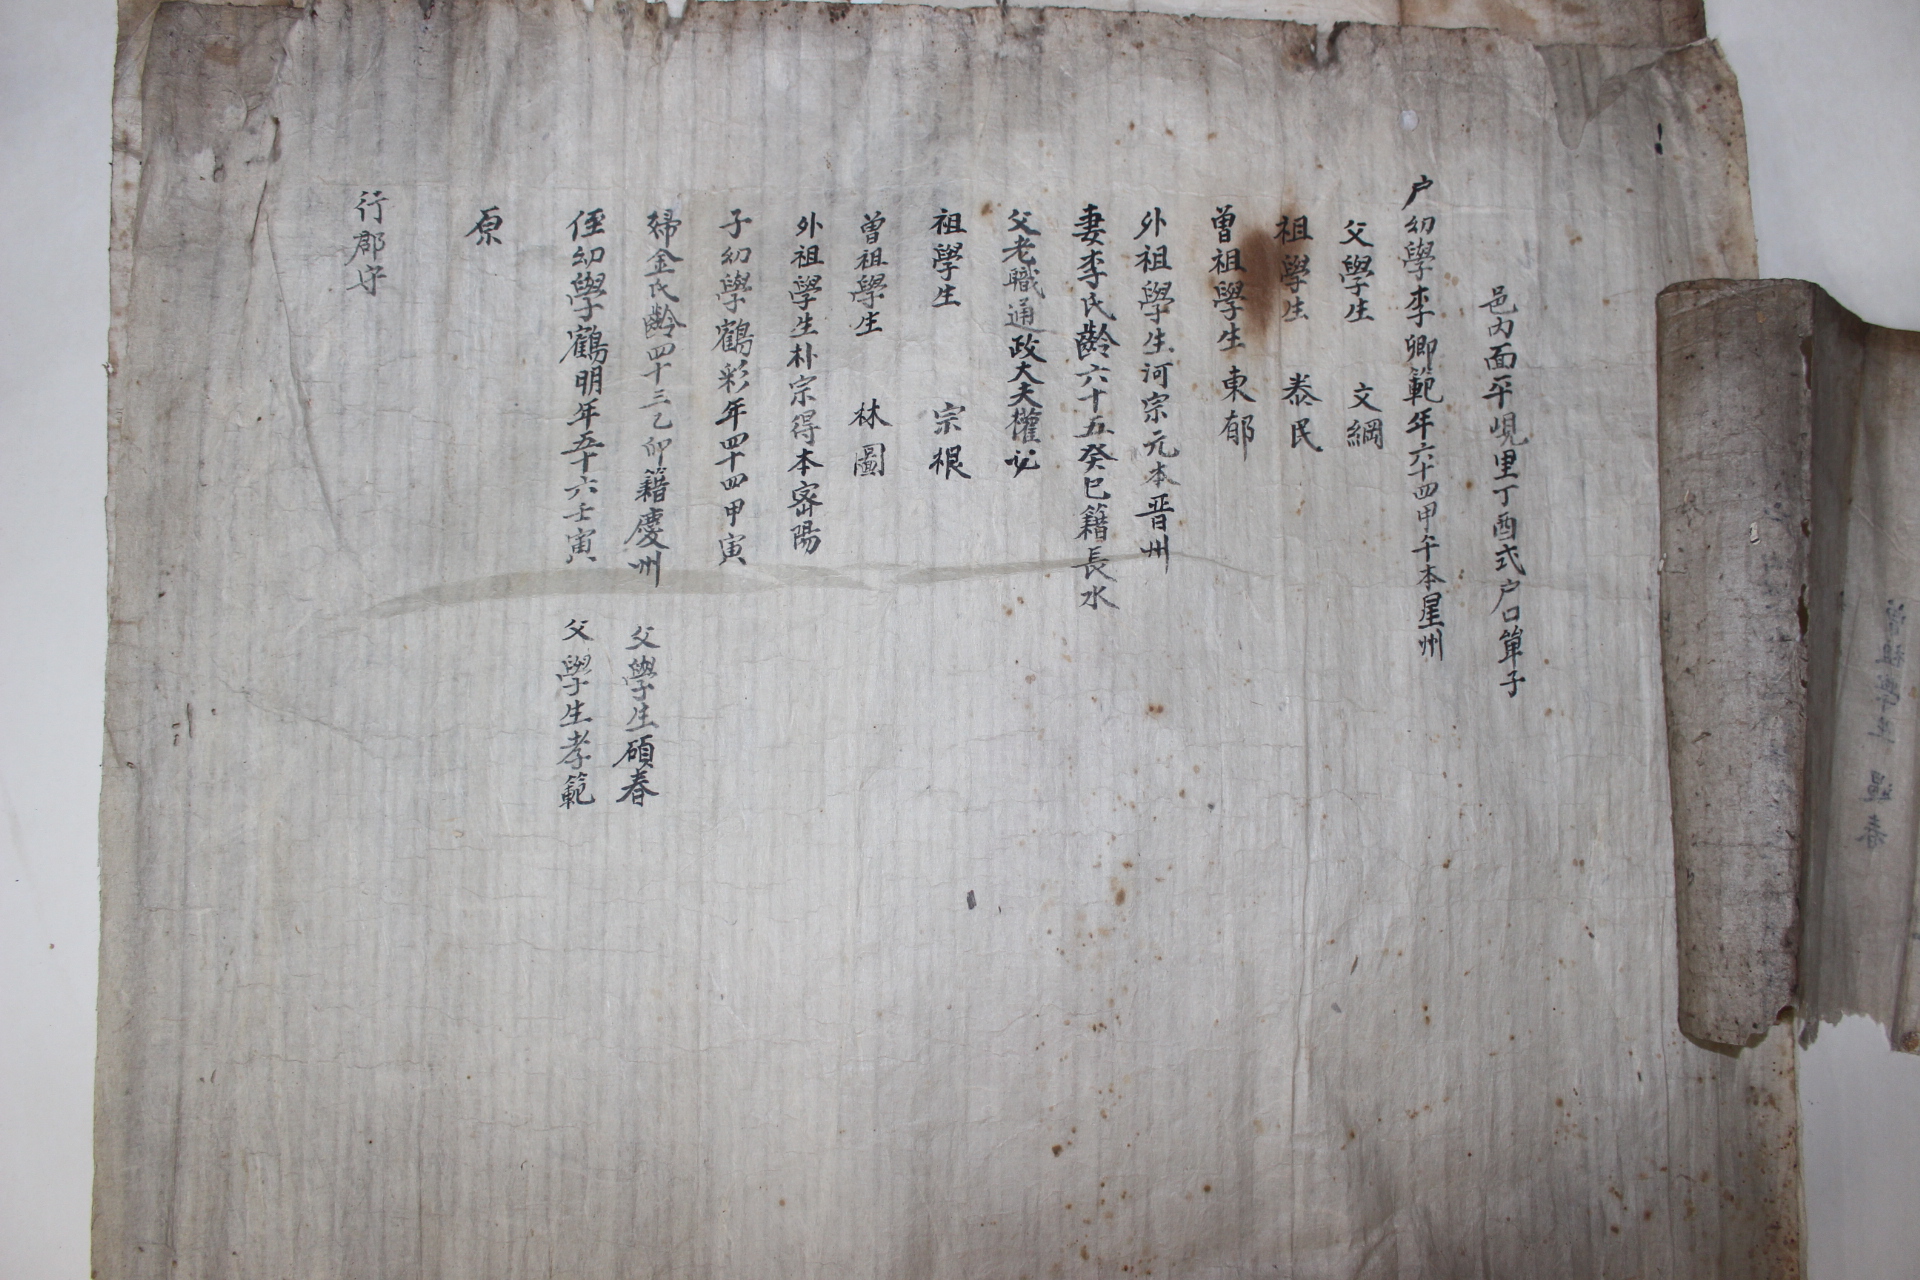 邑内面平峴里丁酉式户口單子
户幼學李卿範年六十四甲午本星州
父學生 文綱
祖學生 泰民
曽祖學生 東郁
外祖學生河宗元本晋州
妻李氏齡六十五癸巳籍長水
父老職通政大夫權
祖學生 宗根
曽祖學生 林圖
外祖學生朴宗得本密陽
子幼學鶴彩年四十四甲寅
婦金氏齡四十三乙卯籍慶州 父學生碩春
侄幼學鶴明年五十六壬寅 父學生孝範
原
行郡守
曽祖學生 遇春